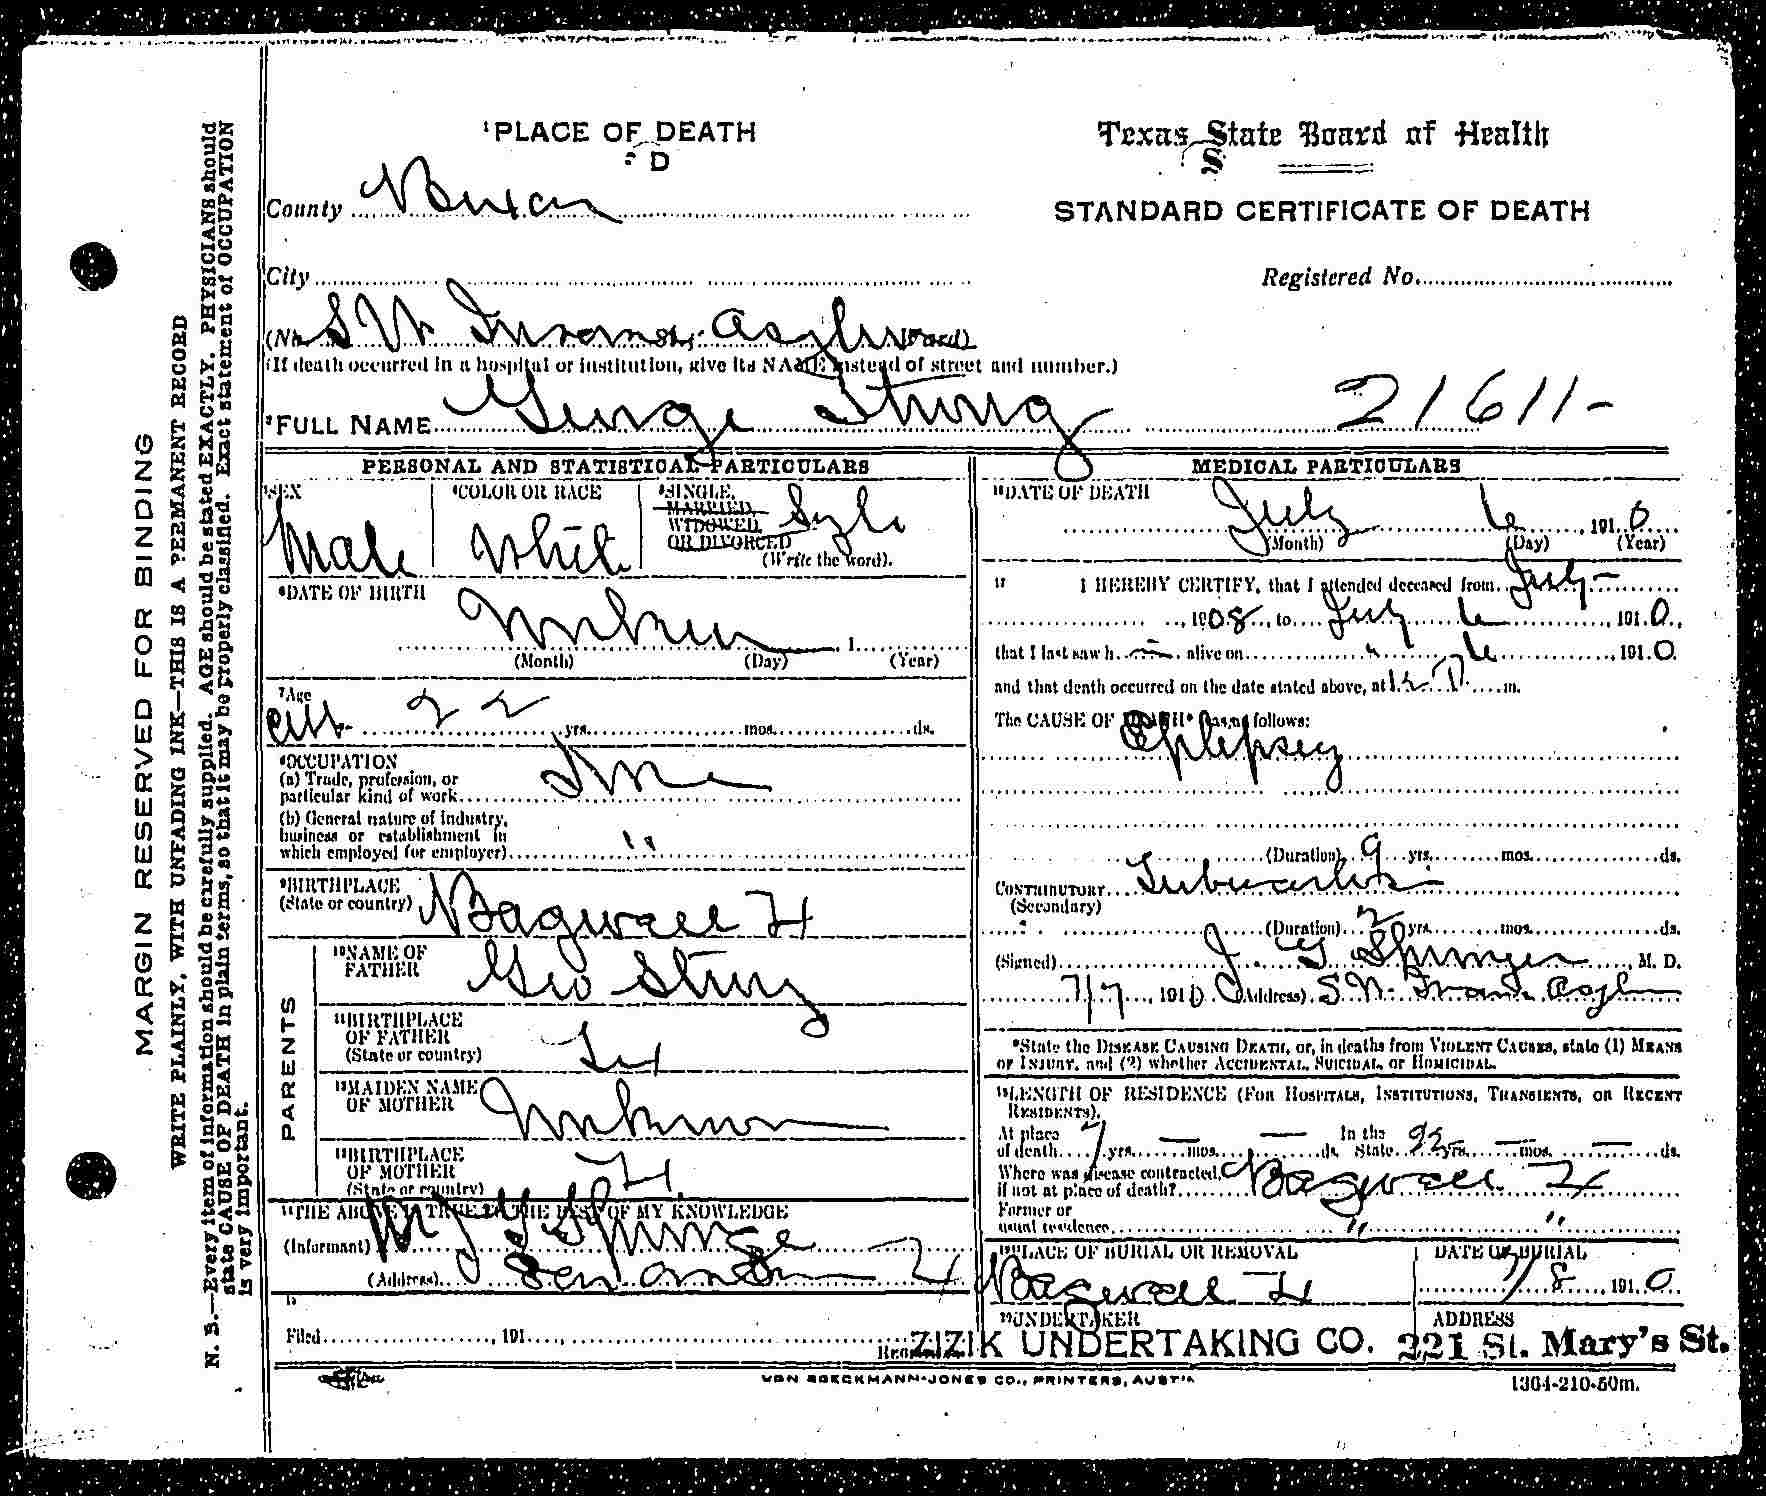 ¹PLACE OF DEATH
Texas State Board of Health
County Bexar
STANDARD CERTIFICATE OF DEATH
City
Registered No.
(No. S W Insane Asylum Ward)
(If death occurred in a hospital or institution, give its NAME instead of street and number.)
²FULL NAME George String 21611-
PERSONAL AND STATISTICAL PARTICULARS
³SEX
Male
⁴COLOR OR RACE
White
⁵SINGLE,
MARRIED,
WIDOWED,
OR DIVORCED
(Write the word).
Single
⁶DATE OF BIRTH
Unknown 1
(Month) (Day) (Year)
⁷Age
abt 22 yrs. mos. ds.
⁸OCCUPATION
(a) Trade, profession, or
particular kind of work
(b) General nature of industry,
business or establishment in
which employed (or employer) "
⁹BIRTHPLACE
(State or country) Bagwell Tx
PARENTS
¹⁰NAME OF
FATHER Geo String
¹¹BIRTHPLACE
OF FATHER
(State or country) Tex
¹²MAIDEN NAME
OF MOTHER Unknown
¹³BIRTHPLACE
OF MOTHER
(State or country) Tx.
¹⁴THE ABOVE IS TRUE TO THE BEST OF MY KNOWLEDGE
(Informant) J G Springer
(Address) San Antonio Tx
¹⁵
Filed 191
MEDICAL PARTICULARS
¹⁶DATE OF DEATH
July 6 1910
(Month) (Day) (Year)
¹⁷ I HEREBY CERTIFY, that I attended deceased from July -
1908, to July 6 1910,
that I last saw h im alive on " 6 1910.
and that death occurred on the date stated above, at 12 P m.
The CAUSE OF DEATH* was as follows:
Eplepsey
(Duration) 9 yrs. mos. ds.
CONTRIBUTORY Tuberculosis
(Secondary)
(Duration) 2 yrs. mos. ds.
(Signed) J. G Springer, M. D.
7/7, 1910 (Address) S W Insane Asylum
*State the DISEASE CAUSING DEATH, or, in deaths from VIOLENT CAUSES, state (1) MEANS
OF INJURY, and (2) whether ACCIDENTAL, SUICIDAL, OR HOMICIDAL.
¹⁸LENGTH OF RESIDENCE (FOR HOSPITALS, INSTITUTIONS, TRANSIENTS, OR RECENT
RESIDENTS).
At place In the
of death 7 yrs. — mos. — ds. State 22 yrs. — mos. — ds.
Where was disease contracted,
if not at place of death? Bagwell Tx
Former or
usual residence " "
¹⁹PLACE OF BURIAL OR REMOVAL
Bagwell Tx
DATE OF BURIAL
7/8 1910
²⁰UNDERTAKER
ZIZIK UNDERTAKING CO.
ADDRESS
221 St. Mary's St.
VON BOECKMANN-JONES CO., PRINTERS, AUSTIN
1304-210-50m.
MARGIN RESERVED FOR BINDING
WRITE PLAINLY, WITH UNFADING INK—THIS IS A PERMANENT RECORD
N. B.—Every item of information should be carefully supplied. AGE should be stated EXACTLY. PHYSICIANS should
state CAUSE OF DEATH in plain terms, so that it may be properly classified. Exact statement of OCCUPATION
is very important.